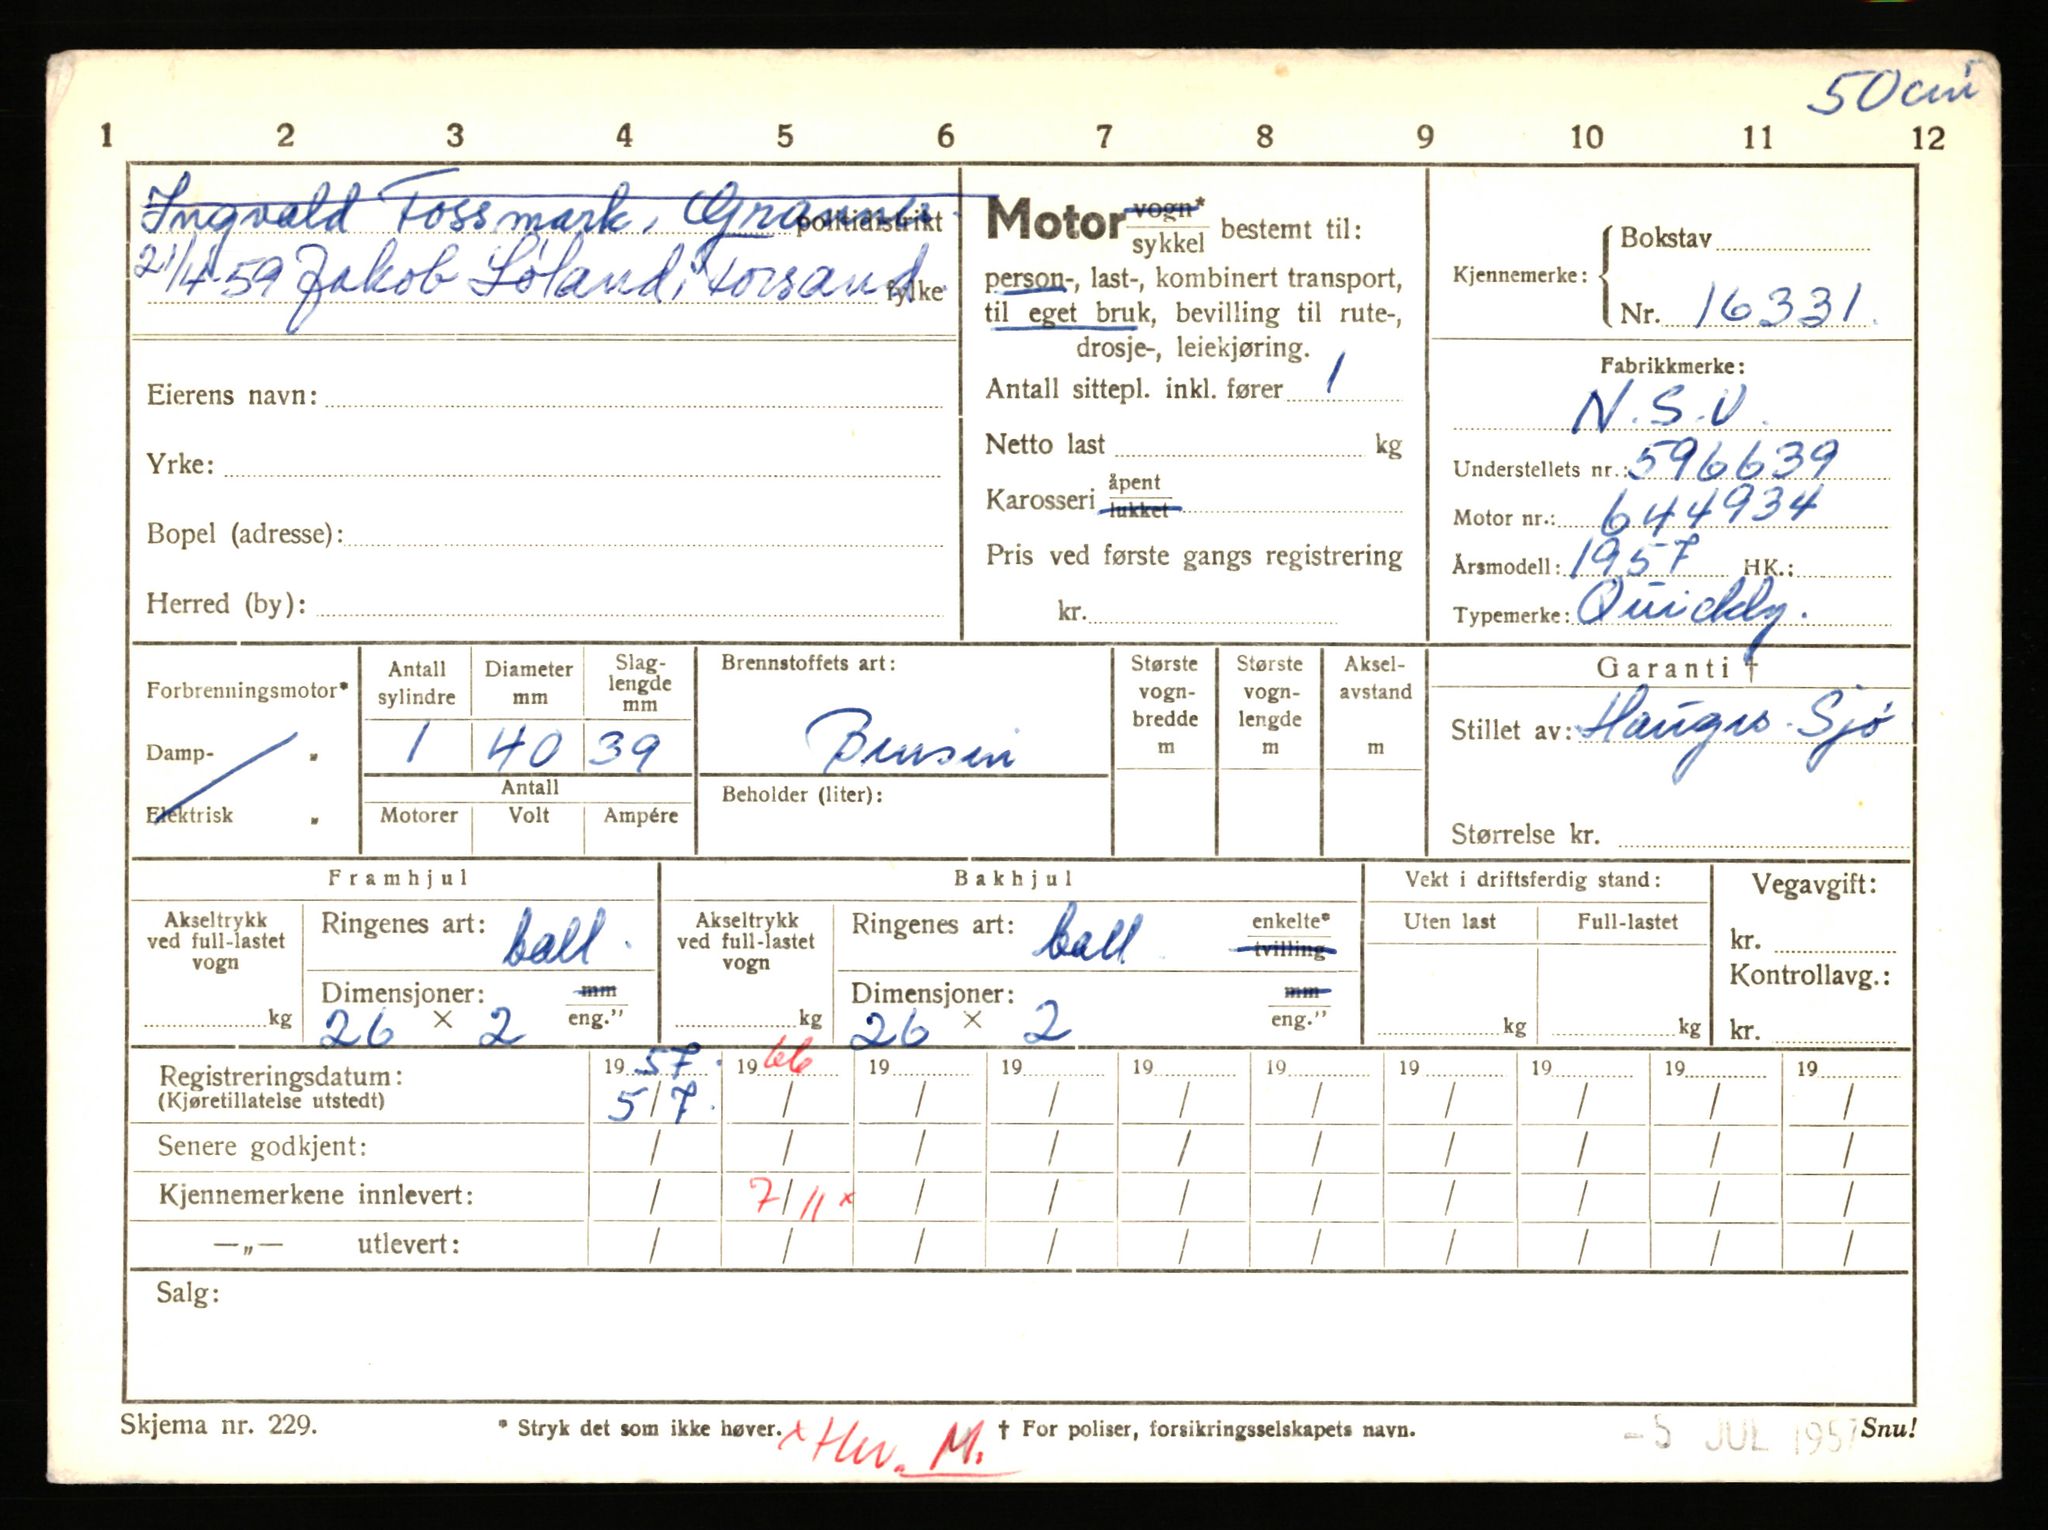 50 cm³
1 2 3 4 5 6 7 8 9 10 11 12
Ingvald Fossmark, politidistrikt
21/4-59 Jakob Løland, Forsand. fylke
Eierens navn:
Yrke:
Bopel (adresse):
Herred (by):
Motor vogn* sykkel bestemt til:
person-, last-, kombinert transport,
til eget bruk, bevilling til rute-,
drosje-, leiekjøring.
Antall sittepl. inkl. fører 1
Netto last kg
Karosseri åpent lukket
Pris ved første gangs registrering
kr.
Kjennemerke: Bokstav
Nr. 16331.
Fabrikkmerke:
N.S.U.
Understellets nr.: 596639
Motor nr.: 644934
Årsmodell: 1957 HK.:
Typemerke: Quickly.
Forbrenningsmotor*
Damp- "
Elektrisk "
Antall sylindre
Diameter mm
Slag-
lengde
mm
1 40 39
Antall
Motorer Volt Ampére
Brennstoffets art:
Bensin
Beholder (liter):
Største
vogn-
bredde
m
Største
vogn-
lengde
m
Aksel-
avstand
m
Garanti †
Stillet av: Hauges. Sjø
Størrelse kr.
Framhjul
Akseltrykk
ved full-lastet
vogn
kg
Ringenes art: ball.
Dimensjoner: mm
26 × 2 eng."
Bakhjul
Akseltrykk
ved full-lastet
vogn
kg
Ringenes art: ball enkelte* tvilling
Dimensjoner: mm
26 × 2 eng."
Vekt i driftsferdig stand:
Uten last Full-lastet
kg kg
Vegavgift:
kr.
Kontrollavg.:
kr.
Registreringsdatum: 19 57. 19 66 19 19 19 19 19 19 19 19
(Kjøretillatelse utstedt) 5/7. / / / / / / / / /
Senere godkjent: / / / / / / / / / /
Kjennemerkene innlevert: / 7/11 x / / / / / / / /
—„— utlevert: / / / / / / / / / /
Salg:
Skjema nr. 229. * Stryk det som ikke høver. † For poliser, forsikringsselskapets navn. Snu!
-5 JUL 1957